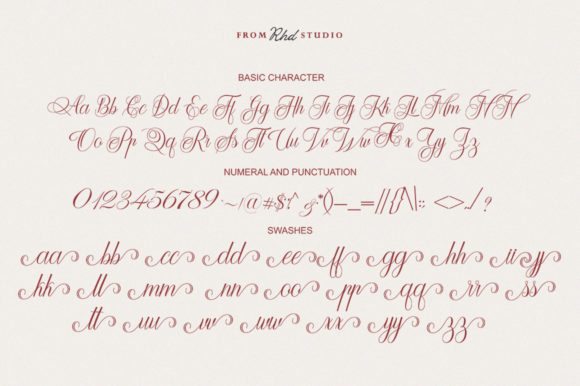 FROM Rhd STUDIO
BASIC CHARACTER
Aa Bb Cc Dd Ee Ff Gg Hh Ii Jj Kk LL Mm
Oo Pp Qq Rr Ss Tt Uu Vv Ww X x Yy Zz
NUMERAL AND PUNCTUATION
0123456789
SWASHES
aa bb cc dd ee ff gg hh ii jj
kk ll mm nn oo pp qq rr ss
tt uu vv ww xx yy zz